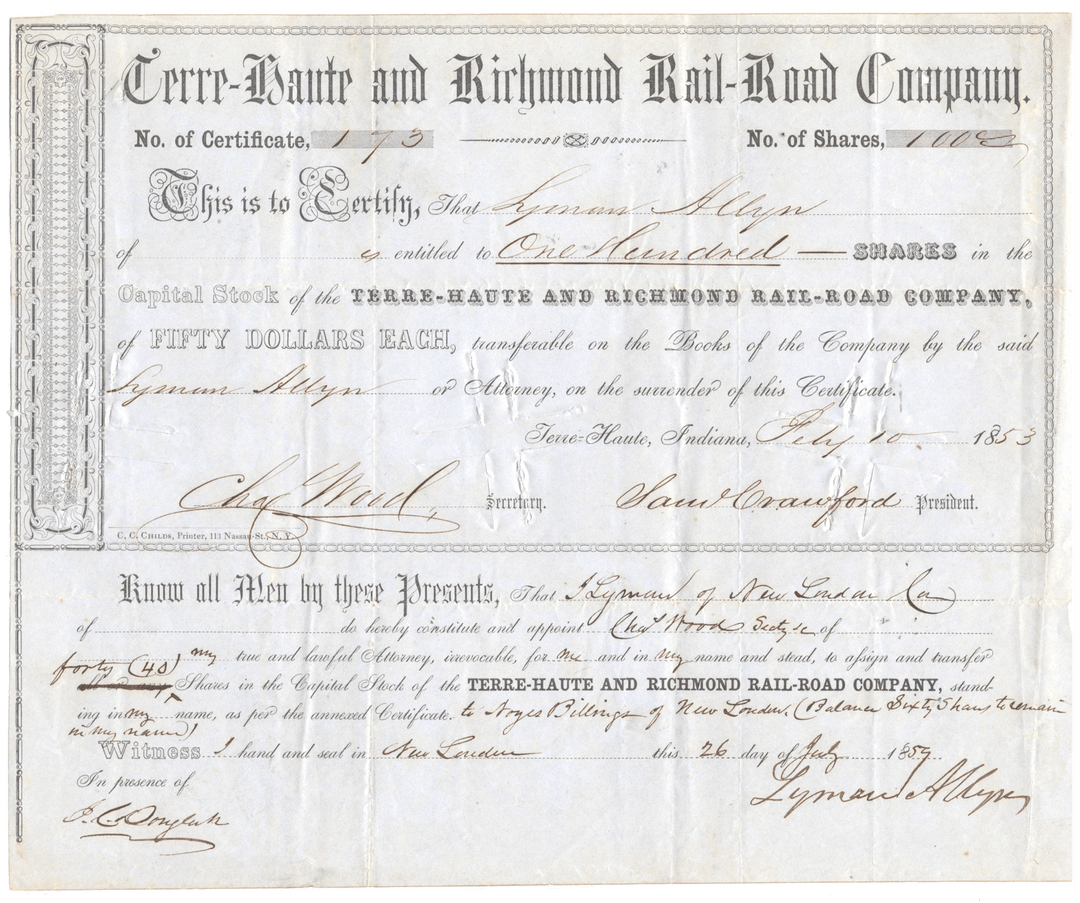 Terre-Haute and Richmond Rail-Road Company.
No. of Certificate, 173 No. of Shares, 100
This is to Certify, That Lyman Allyn
of is entitled to One Hundred — SHARES in the
Capital Stock of the TERRE-HAUTE AND RICHMOND RAIL-ROAD COMPANY,
of FIFTY DOLLARS EACH, transferable on the Books of the Company by the said
Lyman Allyn or Attorney, on the surrender of this Certificate.
Terre-Haute, Indiana, Feby 10 1853
Chas Wood, Secretary. Saml Crawford President.
C. C. CHILDS, Printer, 113 Nassau-St., N. Y.
Know all Men by these Presents, That I Lyman of New London
of do hereby constitute and appoint Chas Wood of
my true and lawful Attorney, irrevocable, for me and in my name and stead, to assign and transfer
forty (40) Shares in the Capital Stock of the TERRE-HAUTE AND RICHMOND RAIL-ROAD COMPANY, stand-
ing in my name, as per the annexed Certificate. to Noyes Billings of New London. (Balance Sixty Shares to remain
in my name)
Witness hand and seal in New London this 26 day of July 1859
In presence of Lyman Allyn